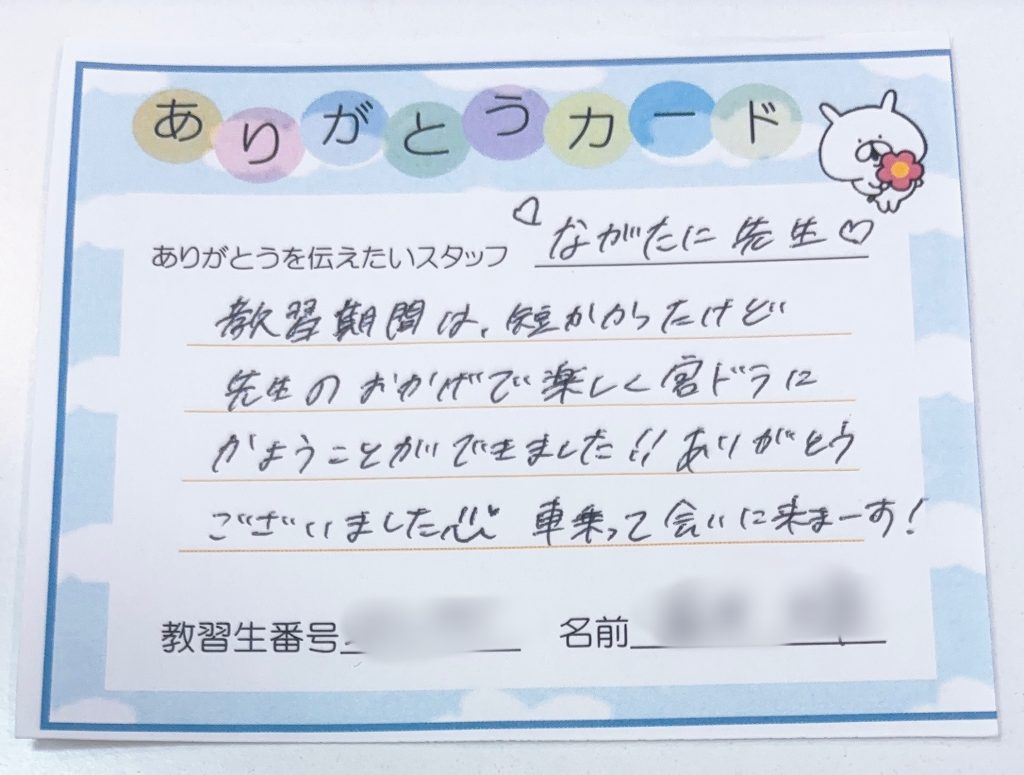 ありがとうカード
ありがとうを伝えたいスタッフ ♡ながたに先生♡
教習期間は、短かかったけど
先生のおかげで楽しく宮ドラに
かようことができました!!ありがとう
ございました 車乗って会いに来まーす!
教習生番号
名前